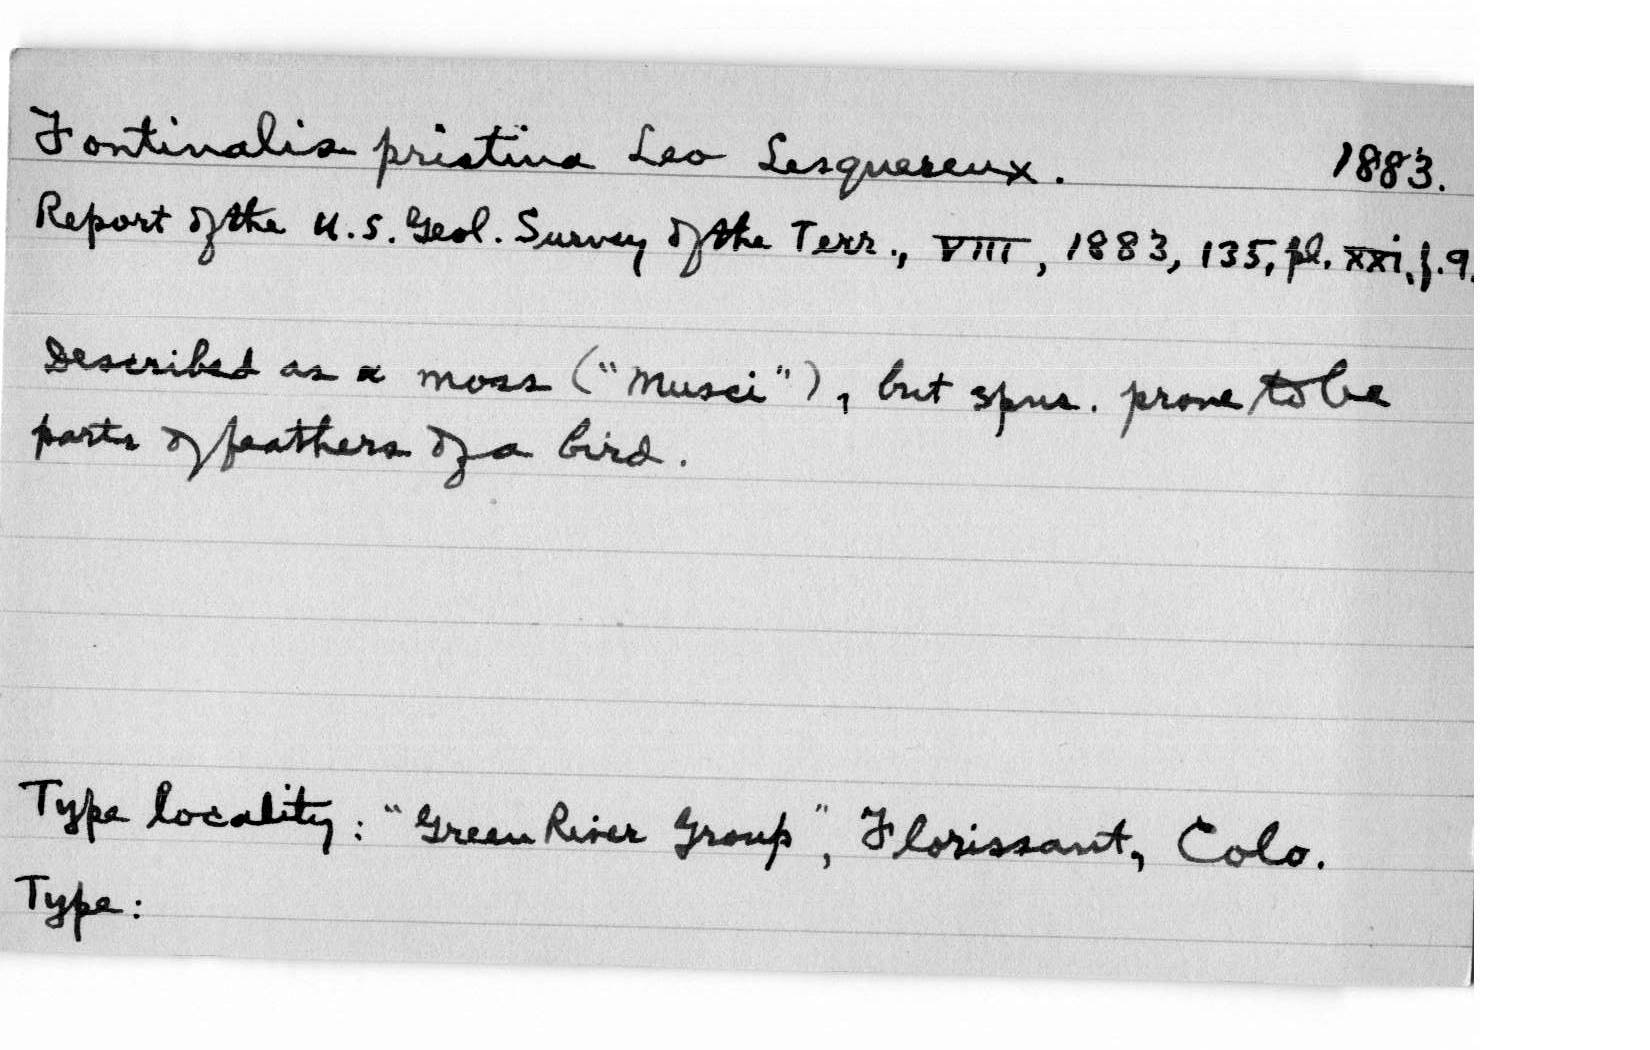 Fontinalis pristina Leo Lesquereux. 1883.
Report of the U.S. Geol. Survey of the Terr., VIII, 1883, 135, pl. xxi, f. 9.
Described as a moss ("Musci"), but spns. prove to be
parts of feathers of a bird.
Type locality: "Green River Group", Florissant, Colo.
Type: